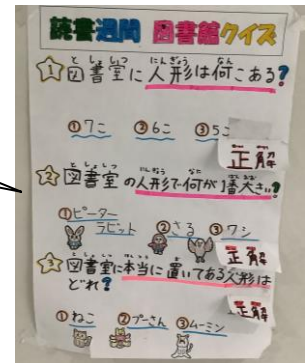 読書週間 図書館クイズ
① 図書室に人形は何こある?
①7こ ②6こ ③5こ
正解
② 図書室の人形で何が1番大きい?
①ピーターラビット ②さる ③ワシ
正解
③ 図書室に本当に置いてある人形は
どれ?
正解
①ねこ ②プーさん ③ムーミン